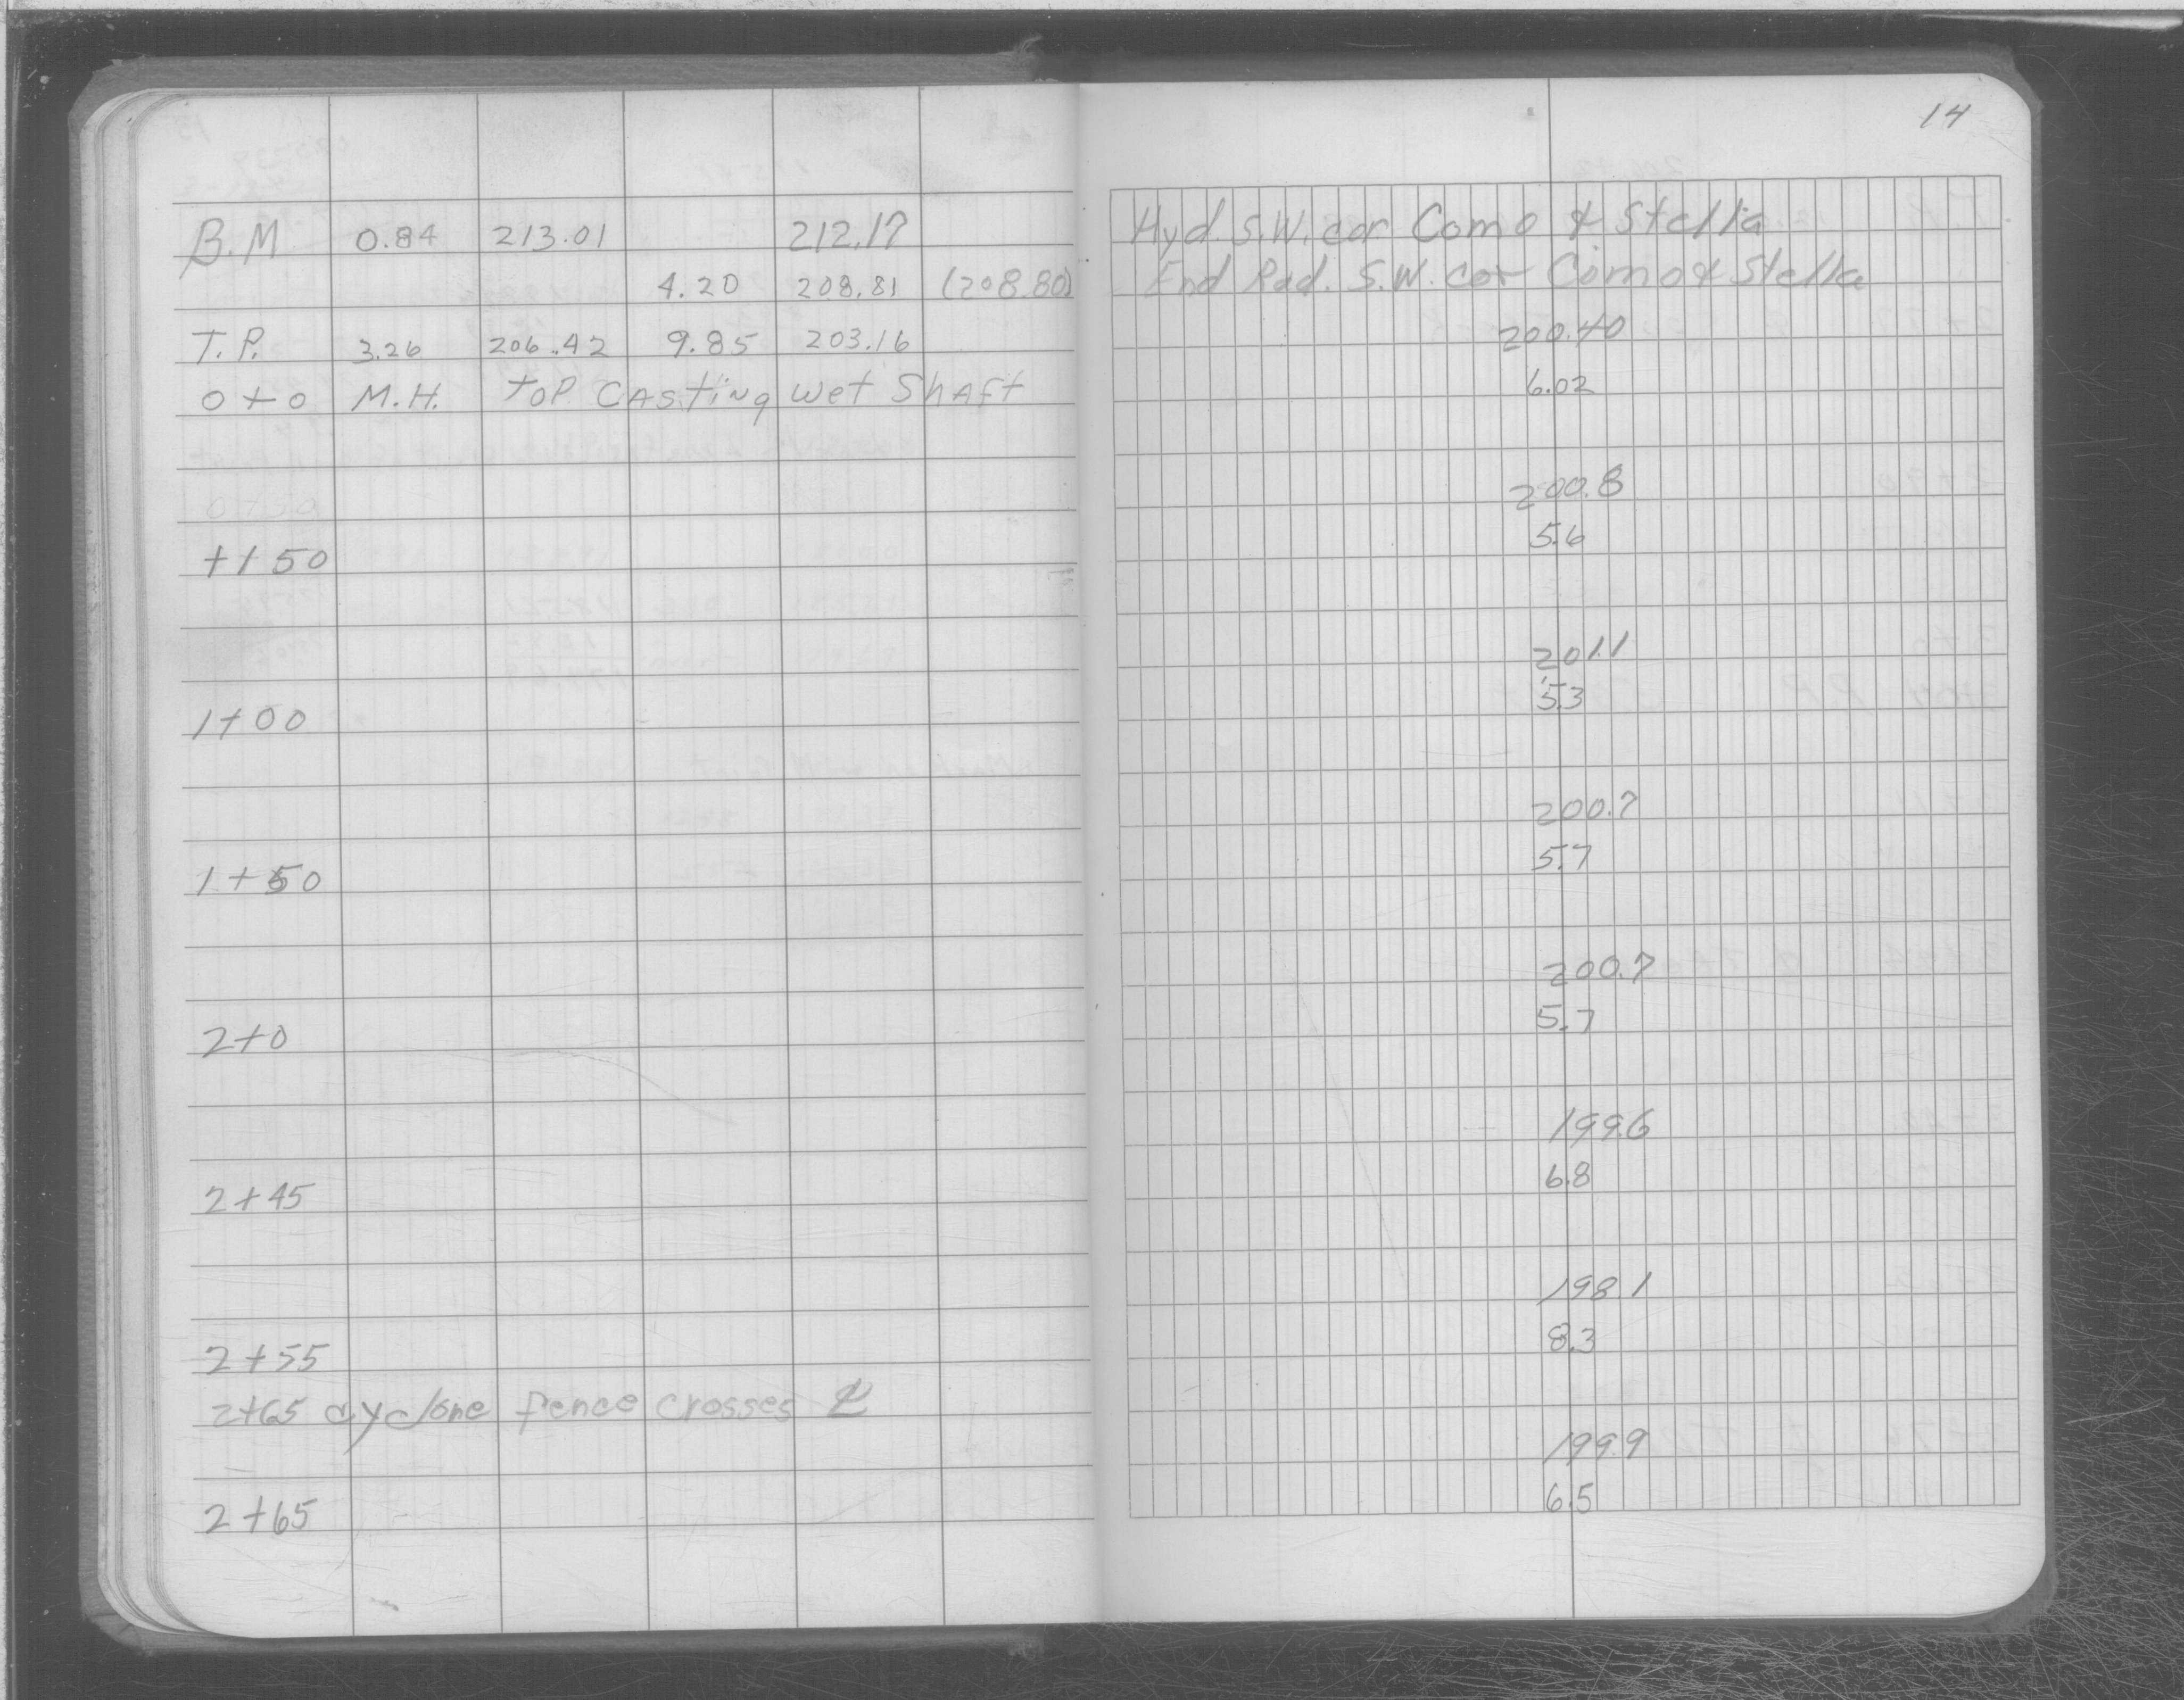 14
B.M 0.84 213.01 212.17 Hyd. S.W. cor Como & Stella
4.20 208.81 (208.80) End Rad. S.W. cor Como & Stella
T.P. 3.26 206.42 9.85 203.16 200.40
0+0 M.H. Top Casting Wet Shaft 6.02
200.8
0+50
5.6
++50
201.1
5.3
1+00
200.7
5.7
1+50
200.7
5.7
2+0
199.6
6.8
2+45
198.1
8.3
2+55
2+65 cyclone fence crosses ℄
199.9
6.5
2+65